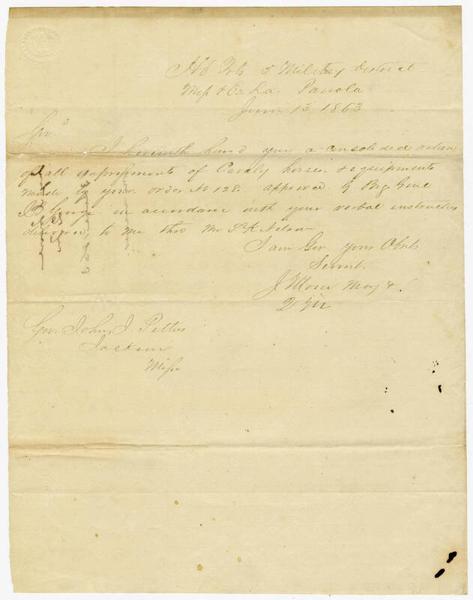 Hd Qts 5 Military District
Miss & Ea La. Panola
June 13 1863
Sir
I herewith hand you a consolidated return
of all impressments of Cavalry horses & equipments
made by your order No 128. approved by Brig Genl
in accordance with your verbal instructions
delivered to me thro Mr
I am Gov your Obt
Servt.
Maj &
Gov. John J Pettus
Jackson
Miss